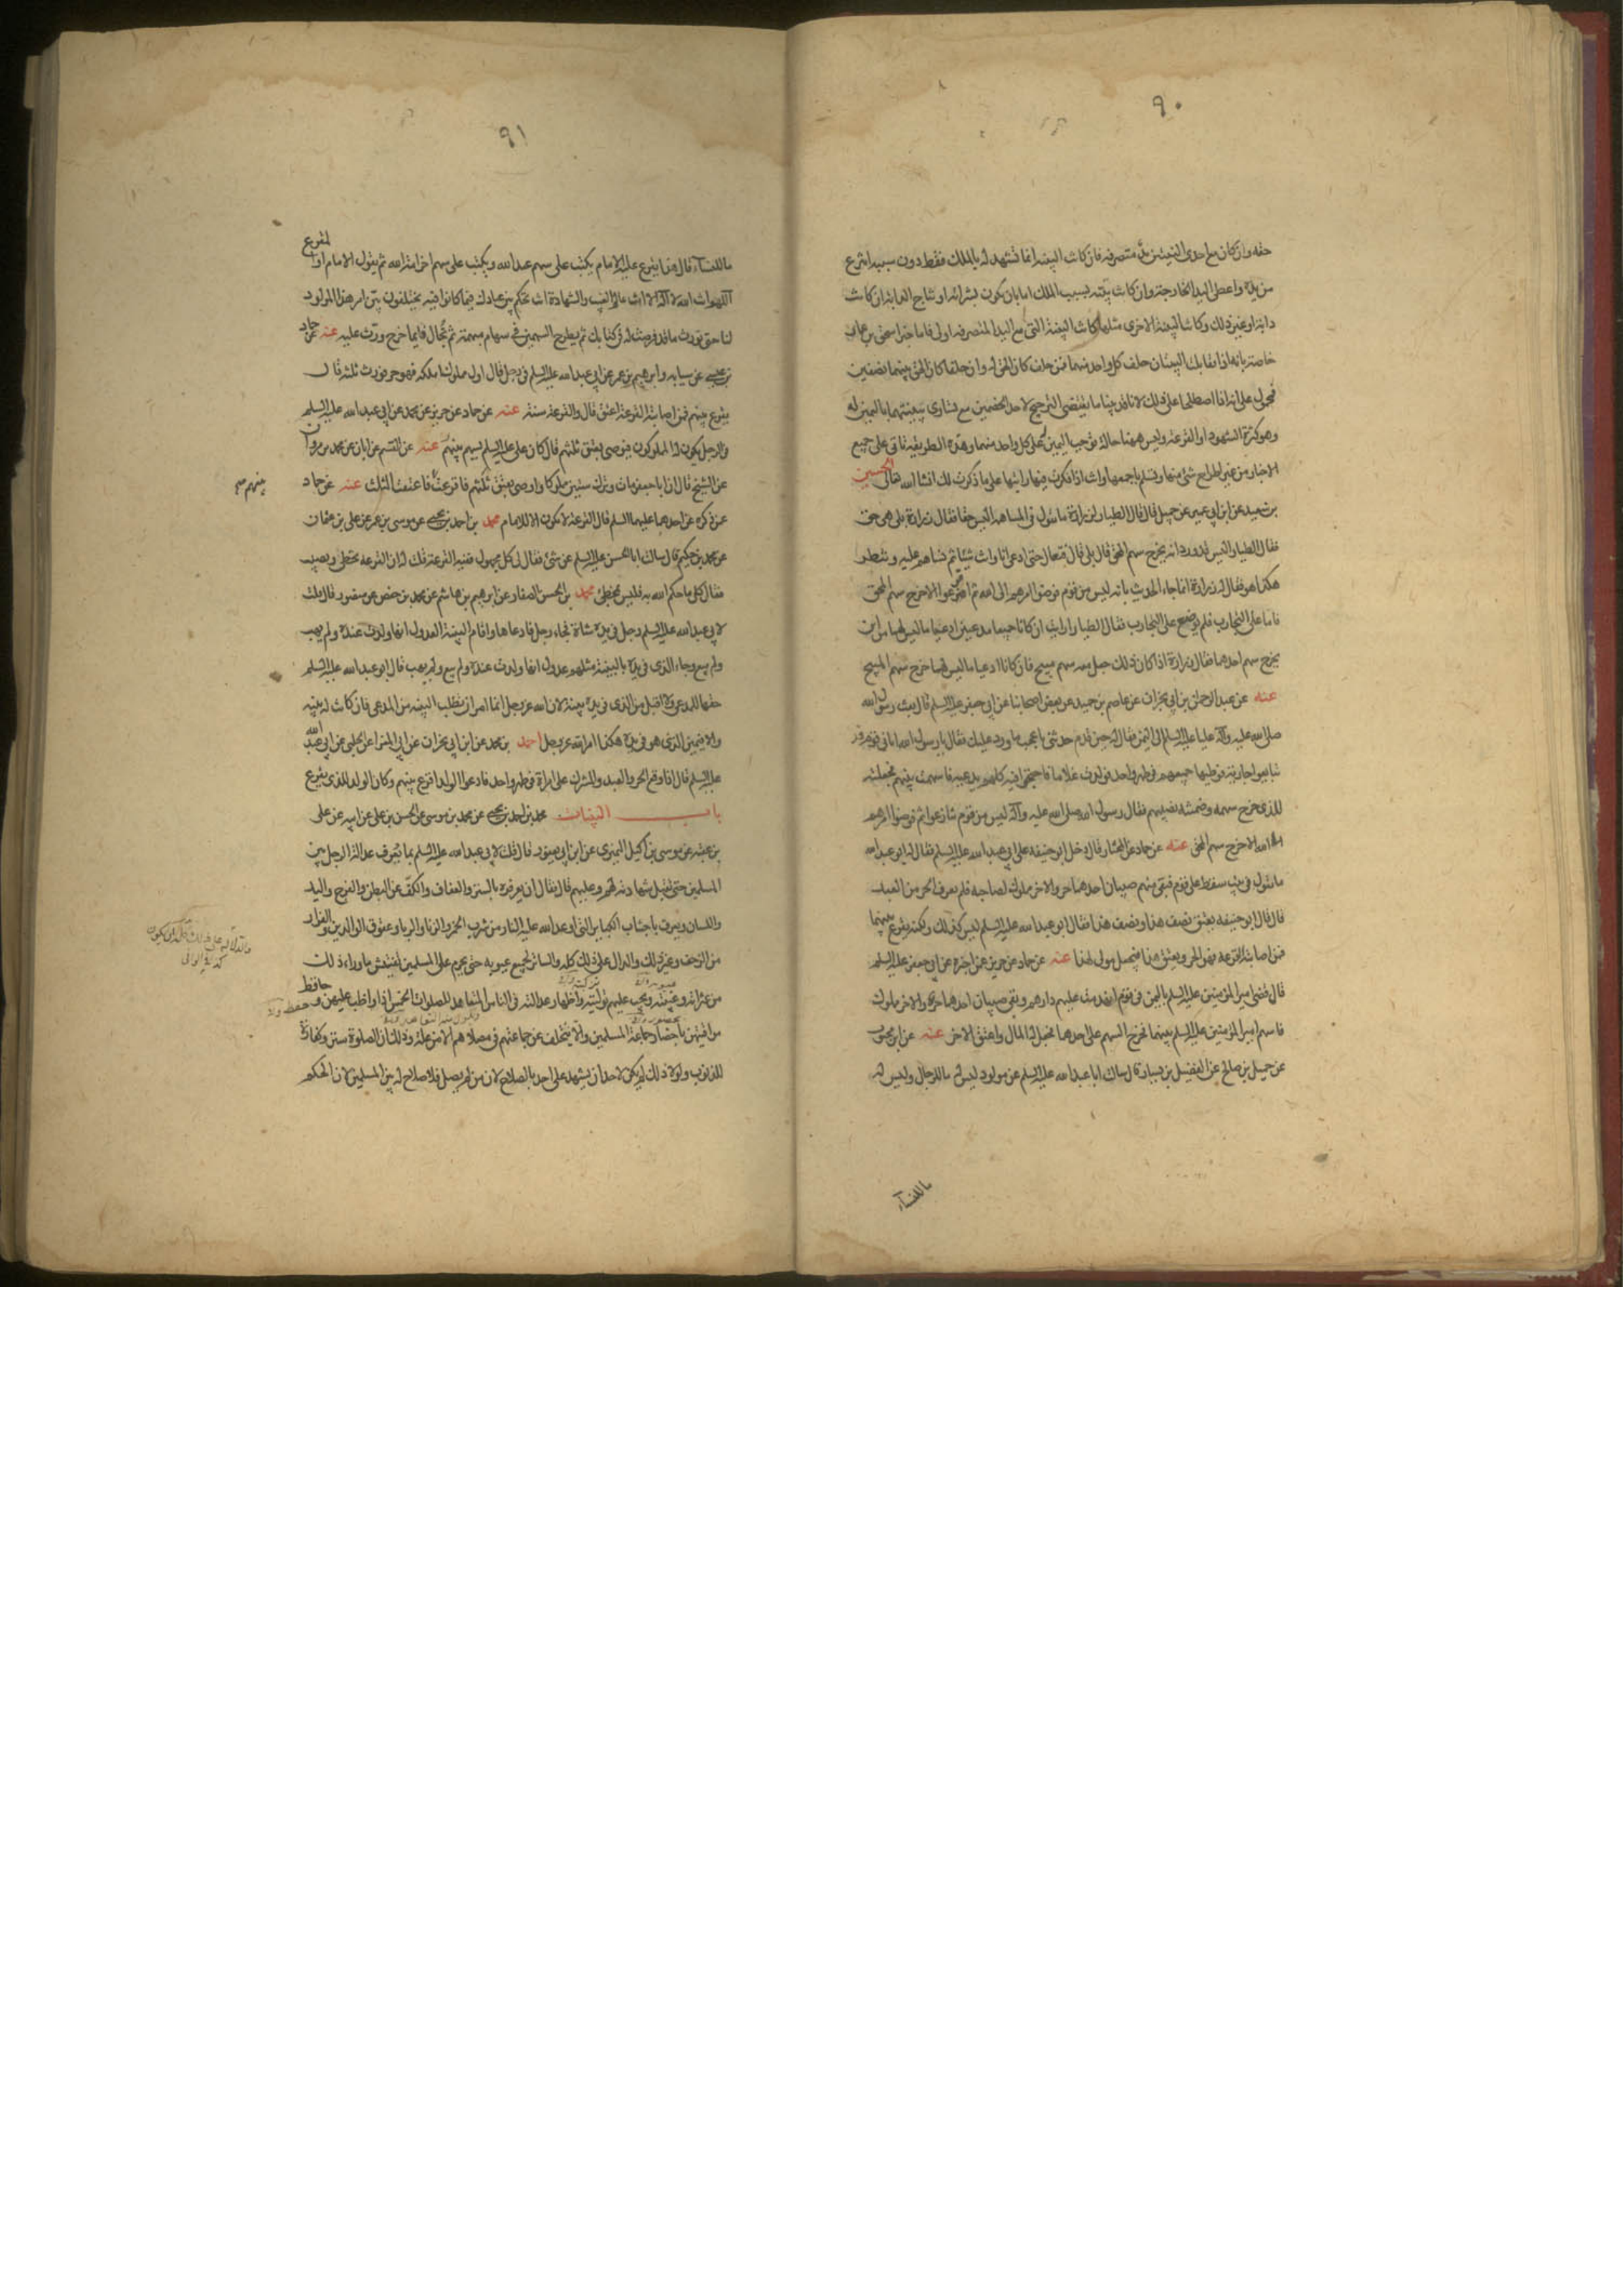 ٩٠
حقه وان كان مع احدى البينتين يد متصرفة فان كانت البينة انما تشهد له بالملك فقط دون سببه انتزع
من يده واعطى اليد الخارجة وان كانت بينته بسبب الملك اما بان يكون بشرائه او نتاج الدابة ان كانت
دابة او غير ذلك وكانت البينة الاخرى مثلها كانت البينة التي مع اليد المتصرفة اولى فاما خبر اسحق بن عمار
خاصة بانه اذا تقابلت البينتان حلف كل واحد منهما فمن حلف كان الحق له وان حلفا كان الحق بينهما نصفين
فمحمول على انه اذا اصطلحا على ذلك لانا قد بينا ما يقتضى الترجيح لاحد الخصمين مع تساوى بينتهما باليمين له
وهو كثرة الشهود او القرعة وليس ههنا حالة توجب اليمين على كل واحد منهما وهذه الطريقة تأتى على جميع
الاخبار من غير اطراح شئ منها وتسلم باجمعها وانت اذا فكرت فيها رايتها على ما ذكرت لك انشا الله تعالى الحسين
بن سعيد عن ابن ابي عمير عن جميل قال قال الطيار لزرارة ما تقول فى المساهمة اليس حقا فقال زرارة بلى هى حق
فقال الطيار اليس قد ورد انه يخرج سهم المحق قال بلى قال فتعال حتى ادعى انا وانت شيئا ثم نساهم عليه وننظر
هكذا هو فقال له زرارة انما جاء الحديث بانه ليس من قوم فوضوا امرهم الى الله ثم اقترعوا الا خرج سهم المحق
فاما على التجارب فلم يوضع على التجارب فقال الطيار ارايت ان كانا جميعا مدعيين ادعيا ما ليس لهما من اين
يخرج سهم احدهما فقال زرارة اذا كان ذلك جعل معه سهم مبيح فان كانا ادعيا ما ليس لهما خرج سهم المبيح
عنه عن عبد الرحمن بن ابي نجران عن عاصم بن حميد عن بعض اصحابنا عن ابي جعفر عليه السلم قال بعث رسول الله
صلى الله عليه وآله عليا عليه السلم الى اليمن فقال له حين قدم حدثنى باعجب ما ورد عليك فقال يا رسول الله اتانى قوم قد
تبايعوا جارية فوطيها جميعهم فى طهر واحد فولدت غلاما فاحتجوا فيه كلهم يدعيه فاسهمت بينهم فجعلته
للذى خرج سهمه وضمنته نصيبهم فقال رسول الله صلى الله عليه وآله ليس من قوم تنازعوا ثم فوضوا امرهم
الى الله الا خرج سهم المحق عنه عن حماد عن المختار قال دخل ابو حنيفة على ابي عبد الله عليه السلم فقال له ابو عبد الله
ما تقول فى بيت سقط على قوم فبقى منهم صبيان احدهما حر والاخر مملوك لصاحبه فلم يعرف الحر من العبد
قال قال ابو حنيفه يعتق نصف هذا ونصف هذا فقال ابو عبد الله عليه السلم ليس كذلك ولكنه يقرع بينهما
فمن اصابته القرعة فهو الحر ويعتق هذا فيجعل مولى لهذا عنه عن حماد عن حريز عمن اخبره عن ابي جعفر عليه السلم
قال قضى امير المؤمنين عليه السلم باليمن فى قوم انهدمت عليهم دارهم وبقى صبيان احدهما حر والاخر مملوك
فاسهم امير المؤمنين عليه السلم بينهما فخرج السهم على احدهما فجعل له المال واعتق الاخر عنه عن ابن محبوب
عن جميل بن صالح عن الفضيل بن يسار قال سالت ابا عبد الله عليه السلم عن مولود ليس له ما للرجال وليس له
ما للنسآء
٩١
ما للنسآء قال هذا يقرع عليه الامام يكتب على سهم عبد الله ويكتب على سهم اخر امة الله ثم يقول الامام او المقرع
اللهم انت الله لا اله الا انت عالم الغيب والشهادة انت تحكم بين عبادك فيما كانوا فيه يختلفون بين امر هذا المولود
لنا حتى نورث ما قد فرضت له فى كتابك ثم يطرح السهمين فى سهام مبهمة ثم تجال فايما خرج ورث عليه عنه عن حماد
بن عيسى عن سيابه وابرهيم بن عمر عن ابي عبد الله عليه السلم فى رجل قال اول مملوك املكه فهو حر فورث ثلثة قال
يقرع بينهم فمن اصابته القرعة اعتق قال والقرعة سنة عنه عن حماد عن حريز عن محمد عن ابي عبد الله عليه السلم
فى الرجل يكون له المملوكون فيوصى بعتق ثلثهم قال كان على عليه السلم يسهم بينهم عنه عن القسم عن ابان عن محمد بن مروان
عن الشيخ قال ان ابا جعفر مات وترك ستين مملوكا واوصى بعتق ثلثهم فاقرعت فاعتقت الثلث عنه عن حماد
بينهم صح
عن ذكره عن احدهما عليهما السلم قال القرعة لا تكون الا للامام محمد بن احمد بن يحيى عن موسى بن عمر عن على بن عثمان
عن محمد بن حكيم قال سالت ابا الحسن عليه السلم عن شئ فقال لى كل مجهول ففيه القرعة قلت له ان القرعة تخطى وتصيب
فقال كل ما حكم الله به فليس بمخطئ محمد بن الحسن الصفار عن ابرهيم بن هاشم عن محمد بن حفص عن منصور قال قلت
لابي عبد الله عليه السلم رجل فى يده شاة فجاء رجل فادعاها واقام البينة العدول انها ولدت عنده ولم يهب
ولم يبع وجاء الذى فى يده بالبينة مثلهم عدول انها ولدت عنده ولم يبع ولم يهب قال ابو عبد الله عليه السلم
حقها للمدعى ولا اقبل من الذى فى يده بينة لان الله عز وجل انما امر ان تطلب البينه من المدعى فان كانت له بينه
والا فيمين الذى هو فى يده هكذا امر الله عز وجل احمد بن محمد عن ابن ابي نجران عن ابي المغرا عن الحلبى عن ابي عبد الله
عليه السلم قال اذا وقع الحر والعبد والمشرك على امراة فى طهر واحد فادعوا الولد اقرع بينهم وكان الولد للذى يقرع
باب البينات محمد بن احمد بن يحيى عن محمد بن موسى عن الحسن بن على عن ابيه عن على
بن عقبه عن موسى بن اكيل النميرى عن ابن ابي يعفور قال قلت لابي عبد الله عليه السلم بما تعرف عدالة الرجل بين
المسلمين حتى تقبل شهادته لهم وعليهم قال فقال ان يعرفوه بالستر والعفاف والكف عن البطن والفرج واليد
واللسان ويعرف باجتناب الكباير التى اوعد الله عليه النار من شرب الخمر والزنا والربا وعقوق الوالدين والفرار
من الزحف وغير ذلك والدال على ذلك كله والساتر لجميع عيوبه حتى يحرم على المسلمين تفتيش ما وراء ذلك
والدلالة على ذلك كله ان يكون
كذا فى الوافى
من عثراته وغيبته ويجب عليهم توليته واظهار عدالته فى الناس المتعاهد للصلوات الخمس اذا واظب عليهن وحافظ
مواقيتهن باحضار جماعة المسلمين والا يتخلف عن جماعتهم فى مصلاهم الا من علة وذلك ان الصلوة ستر وكفارة
للذنوب ولولا ذلك لم يكن لاحد ان يشهد على احد بالصلاح لان من لم يصل فلا صلاح له بين المسلمين لان الحكم